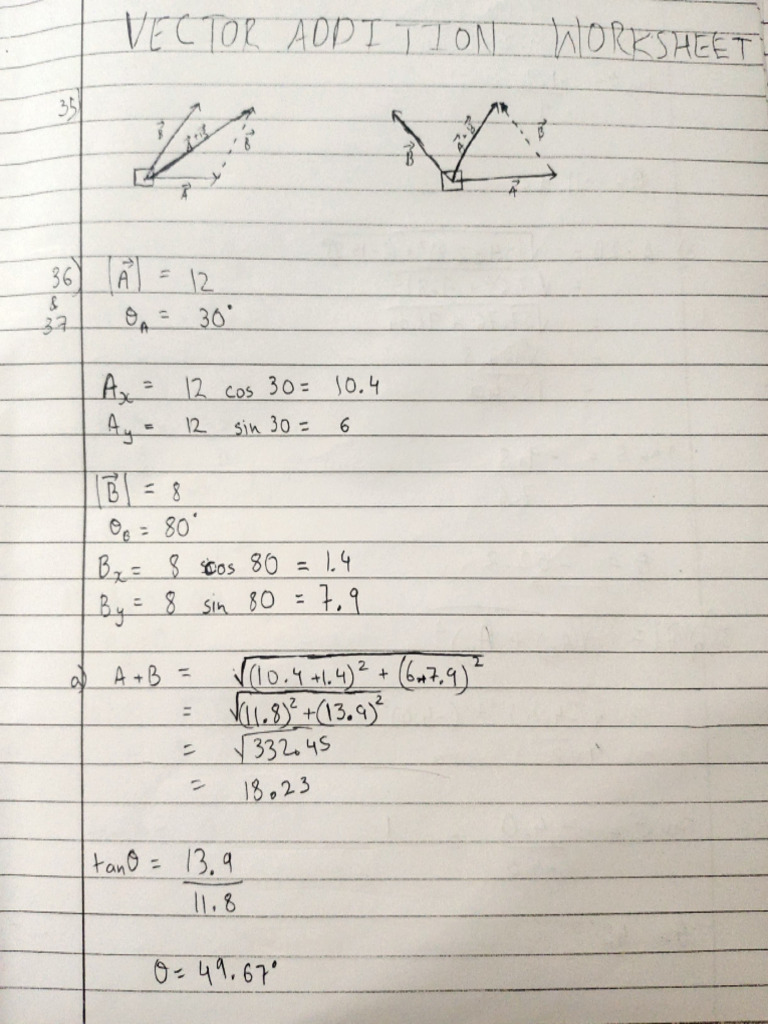 VECTOR ADDITION WORKSHEET
35)
B⃗ A⃗+B⃗ B⃗ A⃗
B⃗ A⃗+B⃗ B⃗ A⃗
36) |A⃗| = 12
&
37 θA = 30°
Ax = 12 cos 30 = 10.4
Ay = 12 sin 30 = 6
|B⃗| = 8
θB = 80°
Bx = 8 cos 80 = 1.4
By = 8 sin 80 = 7.9
a) A+B = √(10.4+1.4)² + (6+7.9)²
= √(11.8)² + (13.9)²
= √332.45
= 18.23
tanθ = 13.9
11.8
θ = 49.67°